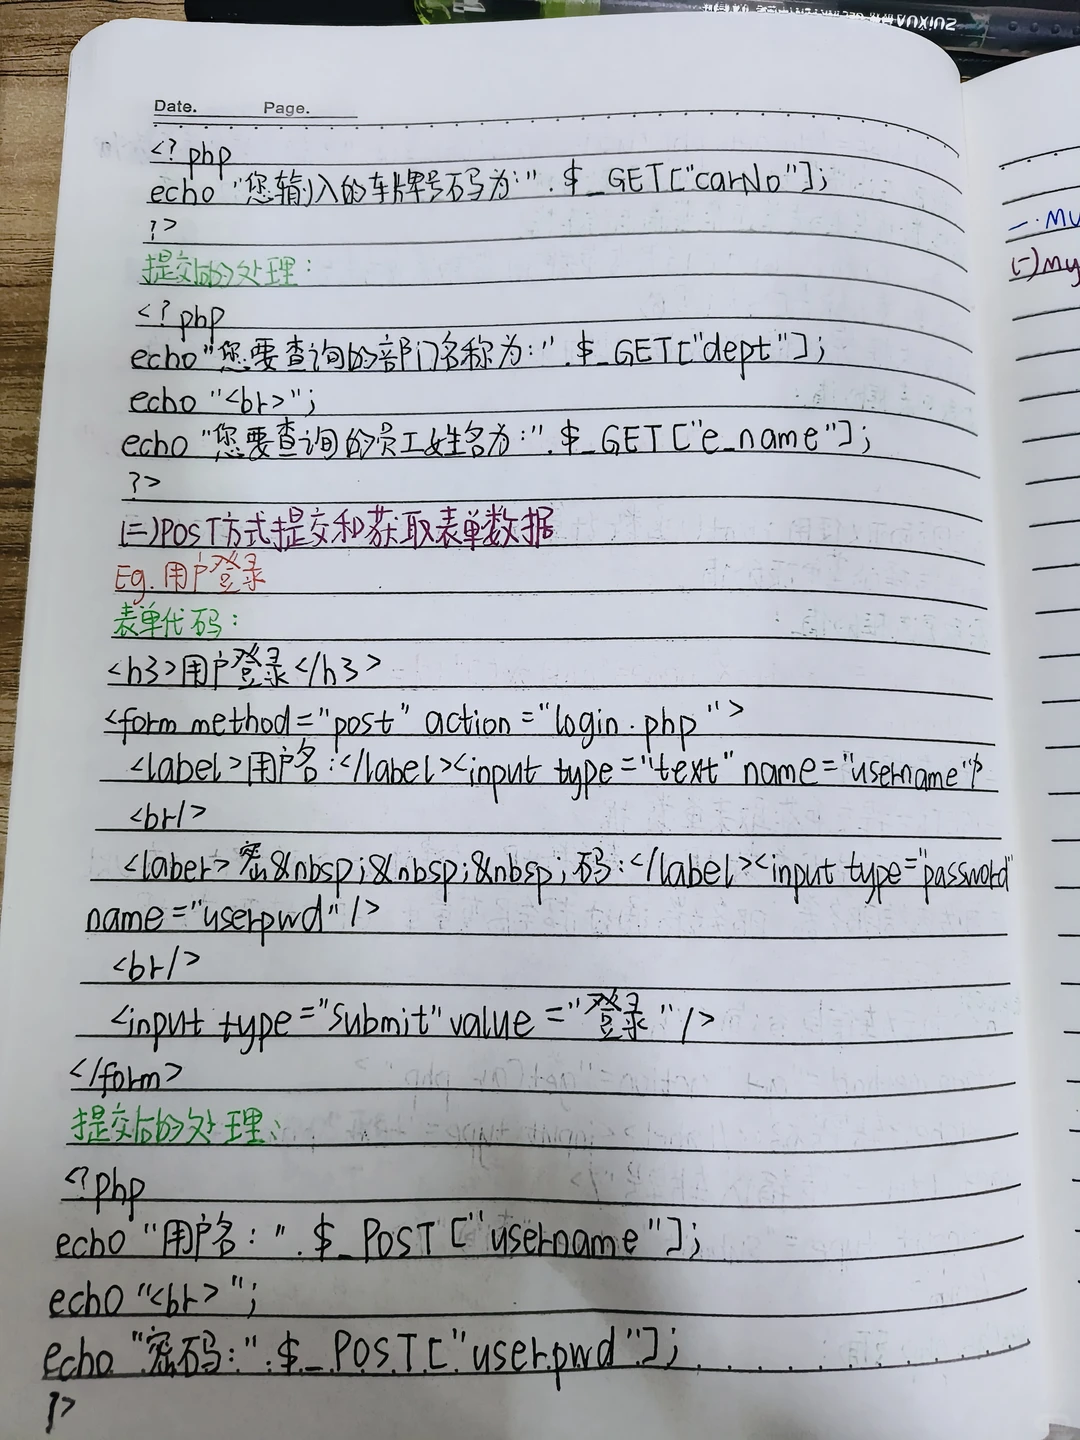 ZUIXUA
Date. Page.
<?php
echo "您输入的车牌号码为:".$_GET["carNo"];
?>
提交后的处理:
<?php
echo"您要查询的部门名称为:".$_GET["dept"];
echo "<br>";
echo "您要查询的员工姓名为:".$_GET["e_name"];
?>
(二)POST方式提交和获取表单数据
Eg.用户登录
表单代码:
<h3>用户登录</h3>
<form method="post" action="login.php">
<label>用户名:</label><input type="text" name="username"/>
<br/>
<label>密&nbsp;&nbsp;&nbsp;码:</label><input type="password"
name="userpwd"/>
<br/>
<input type="Submit" value="登录"/>
</form>
提交后的处理:
<?php
echo "用户名:".$_POST["username"];
echo "<br>";
echo "密码:".$_POST["userpwd"];
?>
一.MV
(一)My